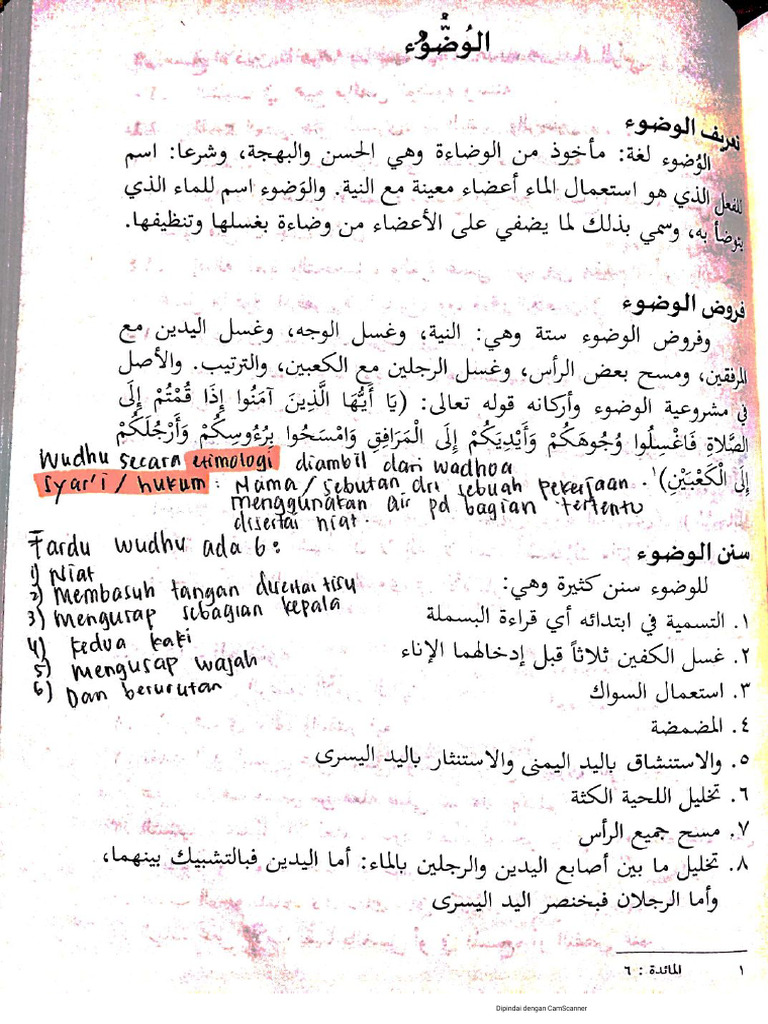 الوُضُوْء
تعريف الوضوء
الوُضوء لغة: مأخوذ من الوضاءة وهي الحسن والبهجة، وشرعا: اسم
للفعل الذي هو استعمال الماء أعضاء معينة مع النية. والوَضوء اسم للماء الذي
يتوضأ به، وسمي بذلك لما يضفي على الأعضاء من وضاءة بغسلها وتنظيفها.
فروض الوضوء
وفروض الوضوء ستة وهي: النية، وغسل الوجه، وغسل اليدين مع
المرفقين، ومسح بعض الرأس، وغسل الرجلين مع الكعبين، والترتيب. والأصل
في مشروعية الوضوء وأركانه قوله تعالى: (يَا أَيُّهَا الَّذِينَ آمَنُوا إِذَا قُمْتُمْ إِلَى
الصَّلاةِ فَاغْسِلُوا وُجُوهَكُمْ وَأَيْدِيَكُمْ إِلَى الْمَرَافِقِ وَامْسَحُوا بِرُءُوسِكُمْ وَأَرْجُلَكُمْ
إِلَى الْكَعْبَيْنِ)١.
Wudhu secara etimologi diambil dari wadhoa
Syar'i / hukum : Nama / sebutan dri sebuah pekerjaan
menggunakan air pd bagian tertentu
disertai niat.
Fardu wudhu ada 6:
1) Niat
2) Membasuh tangan disertai tisu
3) mengusap sebagian kepala
4) kedua kaki
5) mengusap wajah
6) Dan berurutan
سنن الوضوء
للوضوء سنن كثيرة وهي:
١. التسمية في ابتدائه أي قراءة البسملة
٢. غسل الكفين ثلاثاً قبل إدخالهما الإناء
٣. استعمال السواك
٤. المضمضة
٥. والاستنشاق باليد اليمنى والاستنثار باليد اليسرى
٦. تخليل اللحية الكثة
٧. مسح جميع الرأس
٨. تخليل ما بين أصابع اليدين والرجلين بالماء: أما اليدين فبالتشبيك بينهما،
وأما الرجلان فبخنصر اليد اليسرى
١ المائدة : ٦
Dipindai dengan CamScanner